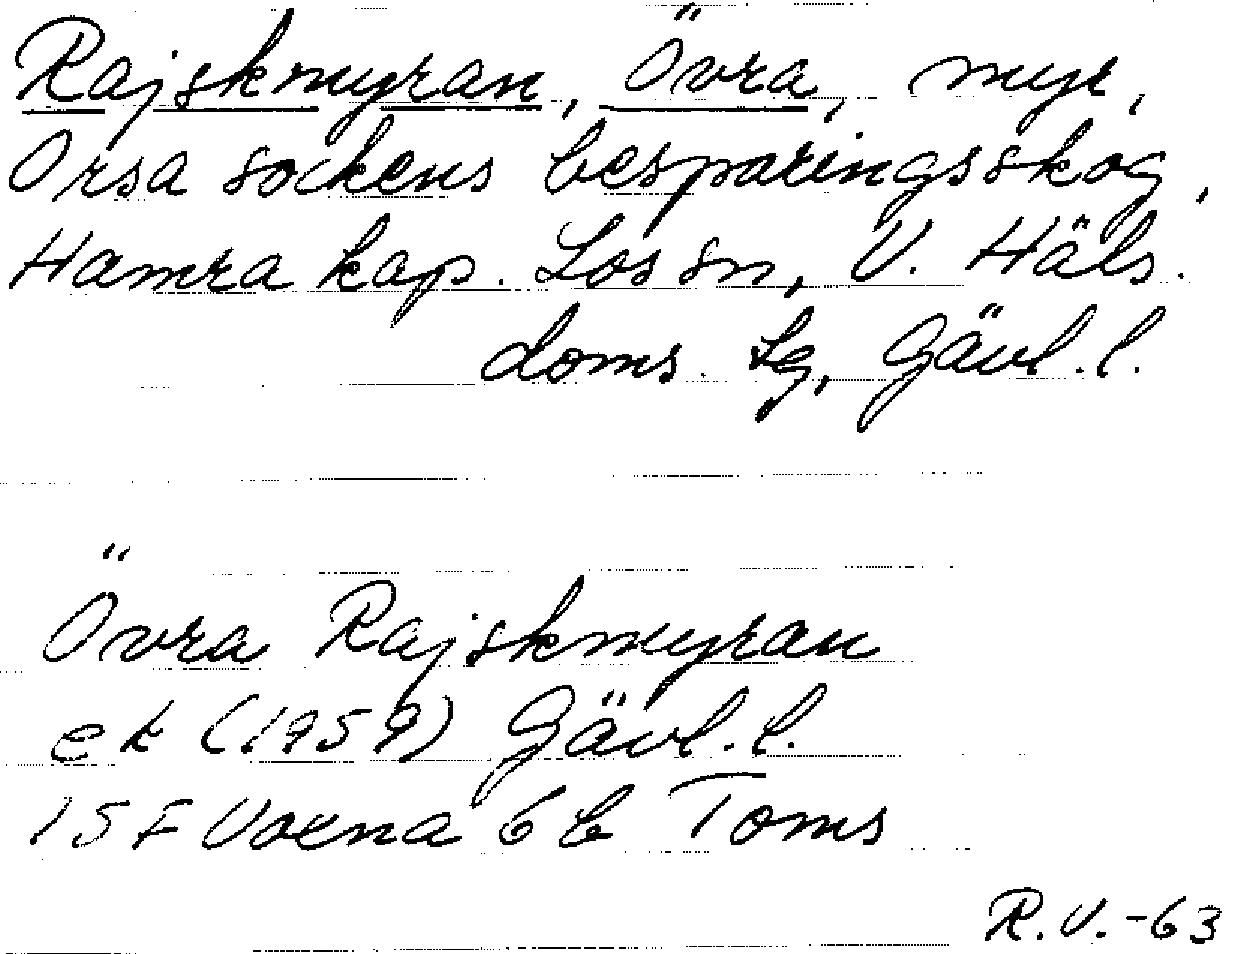 Rajskmyran, Övra, myr,
Orsa sockens besparingsskog,
Hamra kap. Los sn, V. Häls.
doms. Lg, Gävl.l.
Övra Rajskmyran
ek (1959) Gävl.l.
15F Voxna 6b Toms
R.V.-63